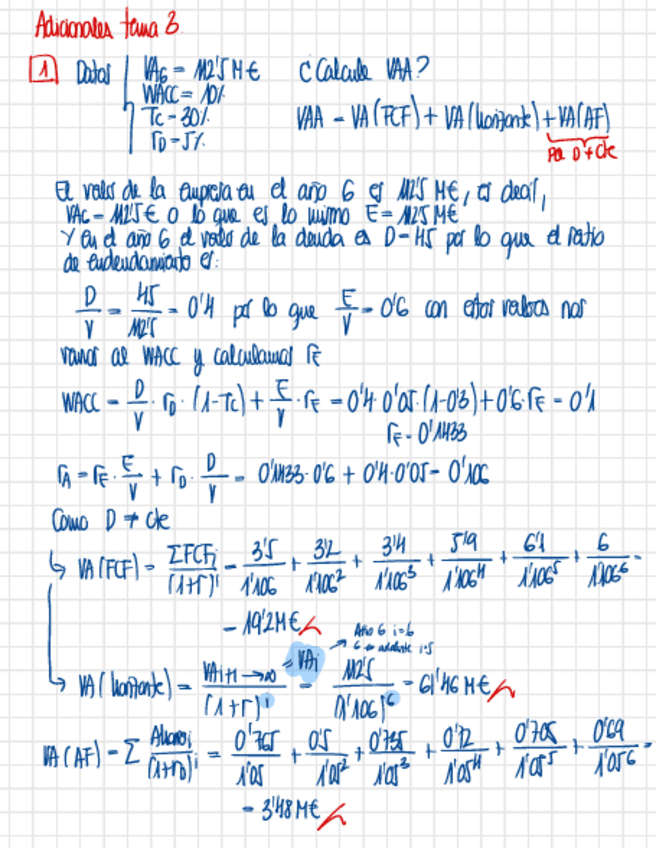 Adicionales tema 3
1 Datos VA6 = 112'5 M€ ¿Calcule VAA?
WACC = 10%
Tc = 30% VAA = VA(FCF) + VA(horizonte) + VA(AF)
rD = 5% por D ≠ cte
El valor de la empresa en el año 6 es 112'5 M€, es decir,
VA6 = 112'5€ o lo que es lo mismo E = 112'5 M€
Y en el año 6 el valor de la deuda es D = 45 por lo que el ratio
de endeudamiento es:
D/V = 45/112'5 = 0'4 por lo que E/V = 0'6 con estos valores nos
vamos al WACC y calculamos rE
WACC = D/V · rD · (1-Tc) + E/V · rE = 0'4 · 0'05 · (1-0'3) + 0'6 · rE = 0'1
rE = 0'1433
rA = rE · E/V + rD · D/V = 0'1433 · 0'6 + 0'4 · 0'05 = 0'106
Como D ≠ cte
↳ VA(FCF) = ΣFCFi/(1+r)^i = 3'5/1'106 + 3'2/1'106² + 3'4/1'106³ + 5'9/1'106⁴ + 6'1/1'106⁵ + 6/1'106⁶ =
= 19'2 M€
Año 6 i=6
6 en adelante i=5
↳ VA(horizonte) = VAi+1→∞/(1+r)^i = VAi = 112'5/(1'106)⁶ = 61'46 M€
VA(AF) = Σ Ahorroi/(1+rD)^i = 0'765/1'05 + 0'5/1'05² + 0'735/1'05³ + 0'72/1'05⁴ + 0'705/1'05⁵ + 0'69/1'05⁶ =
= 3'48 M€